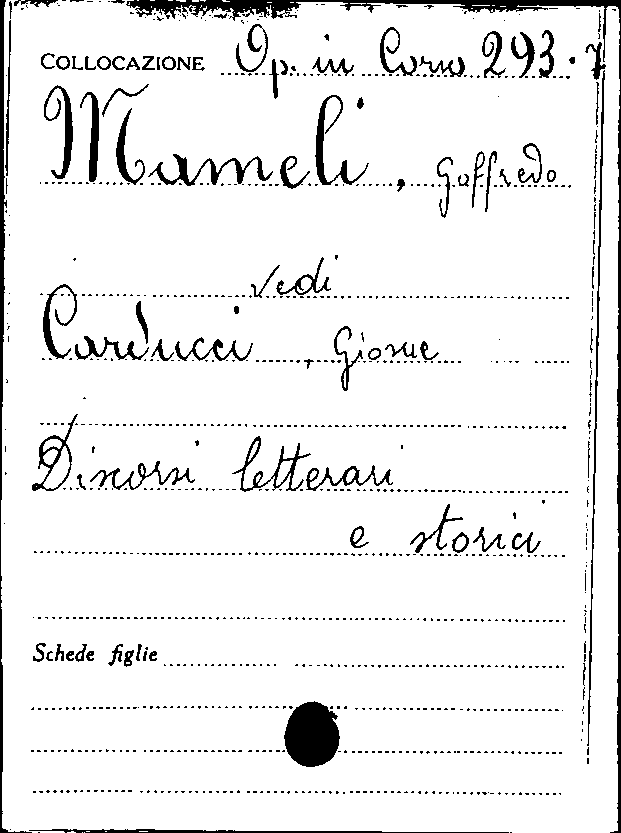 COLLOCAZIONE Op. in Corso 293.7
Mameli, Goffredo
vedi
Carducci, Giosue
Discorsi letterari
e storici
Schede figlie